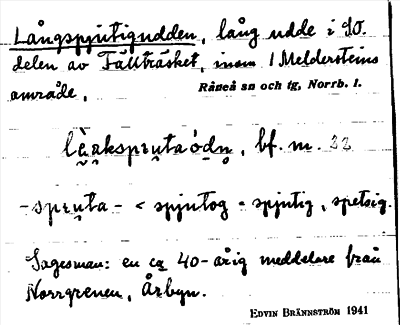 Långspjutigudden, lång udde i SO.
delen av Fällträsket, inom Meldersteins
område.
Råneå sn och tg, Norrb. l.
lḛ̀ạksprṵtaódṇ, bf. m. 33
-sprṵta- < spjutog = spjutig, spetsig.
Sagesman: en ca 40-årig meddelare från
Norrgrenen, Årbyn.
EDVIN BRÄNNSTRÖM 1941